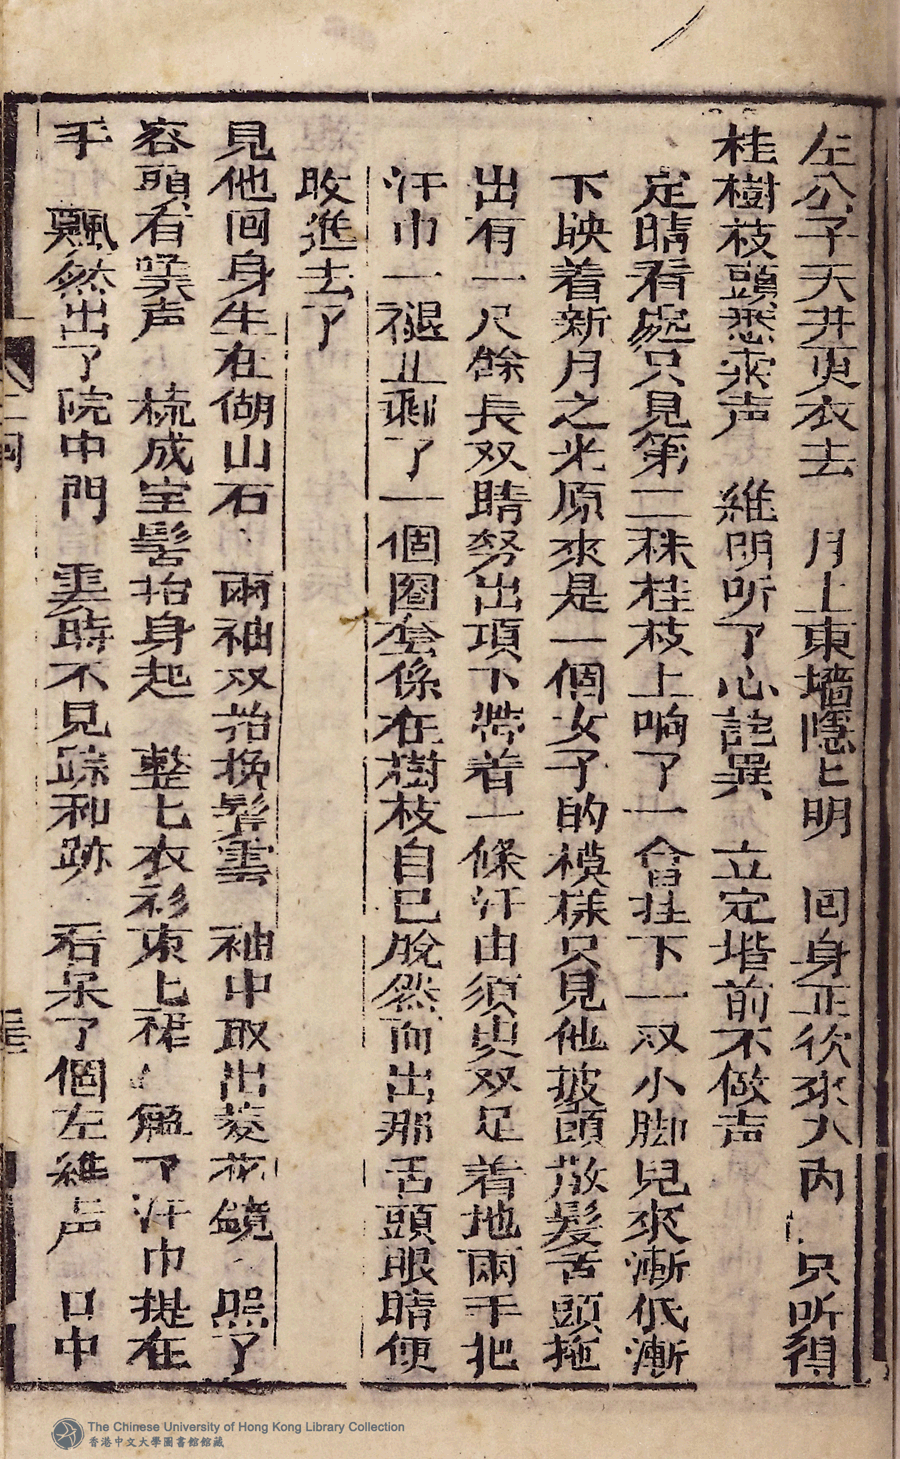 左公子天井更衣去　月上東墻隱匕明　囘身正欲來入內　只听得
桂樹枝頭悉索声　維明听了心詫異　立定堦前不做声
定睛看處只見第二株桂枝上响了一會挂下一双小脚兒來漸低漸
下映着新月之光原來是一個女子的模樣只見他披頭散髮舌頭拖
出有一尺餘長双睛努出項下帶着一條汗巾須臾双足着地兩手把
汗巾一褪止剩了一個圈套係在樹枝自已脫然而出那舌頭眼睛便
收進去了
見他囘身坐在湖山石　兩袖双抬挽鬢雲　袖中取出菱花鏡　照了
容頭看糞声　梳成室髻抬身起　整匕衣衫束上裙　觧了汗巾提在
手　飄然出了院中門　霎時不見踪和跡　看呆了個左維声　口中
二囘
The Chinese University of Hong Kong Library Collection
香港中文大學圖書館館藏